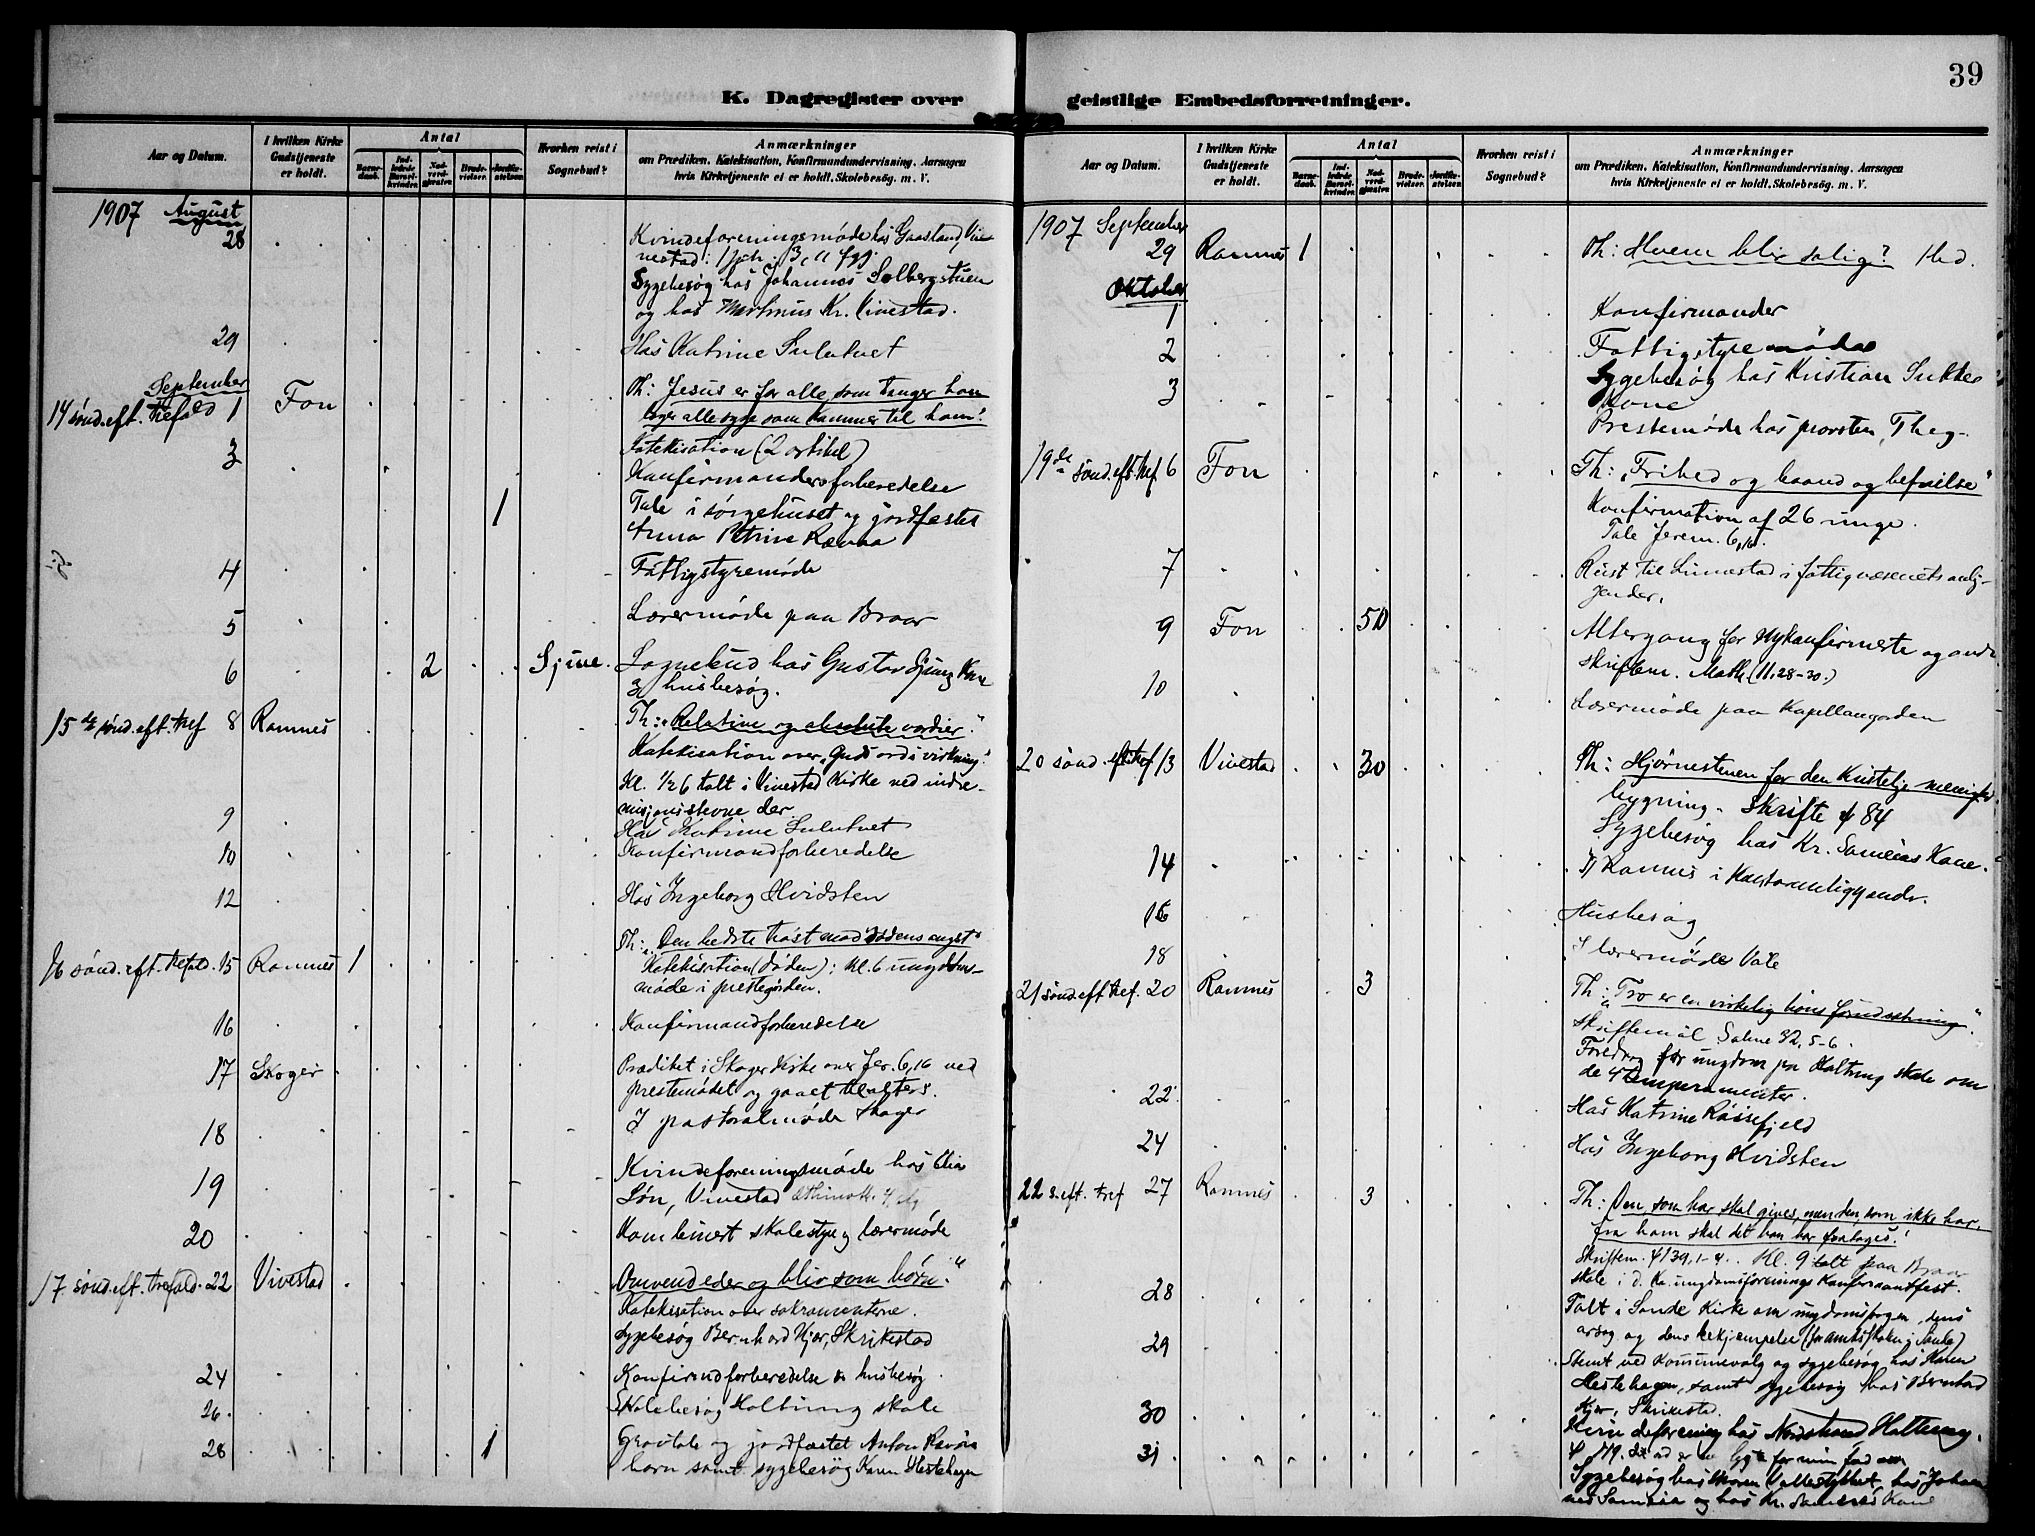 39
K. Dagregister over geistlige Embedsforretninger.
Aar og Datum.
I hvilken Kirke Gudstjeneste er holdt.
Antal
Barnedaab.
Indledede Barselkvinder.
Nadverdgjester.
Brudevielser.
Jordfæstelser.
Hvorhen reist i Sognebud?
Anmærkninger
om Prædiken, Katekisation, Konfirmandundervisning, Aarsagen
hvis Kirketjeneste ei er holdt, Skolebesög. m. V.
1907 August
28 Kvindeforeningsmøde hos Gaasland, Vi-
vestad: 1 Joh. 3, 11 fgg.
Sygebesøg hos Johannes Solbergstuen
og hos Martinus Kr. Vivestad.
29 Hos Katrine
September
14 sønd. eft. trefold 1 Fon Th: Jesus er for alle, som trænger ham
alle syge som kommer til ham.
Katekisation (2 artikel)
3 Konfirmandforberedelse
1 Tale i sørgehuset og jordfestet
Anna Petrine Ravaa
4 Fattigstyremøde
5 Lærermøde paa Braar
6 2 Sjuve. Sognebud hos Gustav
3 husbesøg.
15de sønd. eft. tref 8 Ramnes Th: "Relative og absolute værdier."
Katekisation over "Guds ords virkning".
Kl. 1/2 6 talt i Vivestad kirke ved indre-
der.
9 Hos Katrine
10 Konfirmandforberedelse
12 Hos Ingeborg Hvidsten
16 sønd. eft. trefold. 15 Ramnes 1 Th: "Den bedste trøst mod dødens angst"
Katekisation (døden): Kl. 6 ungdoms-
møde i prestegården.
16 Konfirmandforberedelse
17 Skoger Prædiket i Skoger Kirke over Jer. 6,16 ved
prestemødet og gaaet til alters.
18 I pastoralmøde Skoger
19 Kvindeforeningsmøde hos
Søn, Vivestad
20 Kombinert skolestyre og lærermøde
17 sønd. eft. trefold. 22 Vivestad Omvend eder og bliv som børn."
Katekisation over sakramenterne.
Sygebesøg Bernhard Kjær, Skrikestad
24 Konfirmandforberedelse & husbesøg.
26. Skolebesøg Haltung skole
28 1 Gravtale og jordfæstet Anton
barn samt sygebesøg Karen Hestehagen
Aar og Datum.
I hvilken Kirke Gudstjeneste er holdt.
Antal
Barnedaab.
Indledede Barselkvinder.
Nadverdgjester.
Brudevielser.
Jordfæstelser.
Hvorhen reist i Sognebud?
Anmærkninger
om Prædiken, Katekisation, Konfirmandundervisning, Aarsagen
hvis Kirketjeneste ei er holdt, Skolebesög. m. V.
1907 September
29 Ramnes 1 Th: Hvem blir salig?
Oktober
1 Konfirmander
2 Fattigstyremøde
3 Sygebesøg hos Kristian Sukkes
Kone
Prestemøde hos provsten,
19de sønd. eft. tref. 6 Fon Th: "Frihed og baand og befrielse"
Konfirmation af 26 unge.
Tale Jerem. 6,16.
7 Reist til Linnestad i fattigvæsenets anlig-
gender.
9 Fon 50 Altergang for nykonfirmerte og andre
Skriftem. Math. (11, 28-30.)
10 Lærermøde paa Kapellangården
20 sønd. eft. tref 13 Vivestad 30 Th: Hjørnestenen for den kristelige menigheds
bygning. Skrifte ψ 84
14 Sygebesøg hos Kr. Sameias Kone.
I Ramnes i
16 Husbesøg
18 I lærermøde Vale
21 sønd. eft tref. 20 Ramnes 3 Th: "Tro er en virkelig bøns forudsetning".
Skriftemål Salme 32, 5-6.
Foredrag for ungdom på Haltung skole om
de 4 temperamenter.
22. Hos Katrine
24 Hos Ingeborg Hvidsten
22 s. eft. tref 27 Ramnes 3 Th: Den, som har skal gives, men den, som ikke har,
fra ham skal det han har fratages.
Skriftem. ψ 139, 1-4. Kl. 9 talt paa Braar
skole i ungdomsforenings Konfirmantfest.
28 Talt i Sande Kirke om ungdomssorgen, dens
årsag og dens bekjæmpelse
29 Stemt ved Kommunevalg og sygebesøg hos Karen
Hestehagen, samt sygebesøg hos Bernhard
Kjær, Skrikestad.
30 Kvindeforening hos Nordstrand Haltung.
31. Sygebesøg hos
Sameia og hos Kr. Sameias Kone